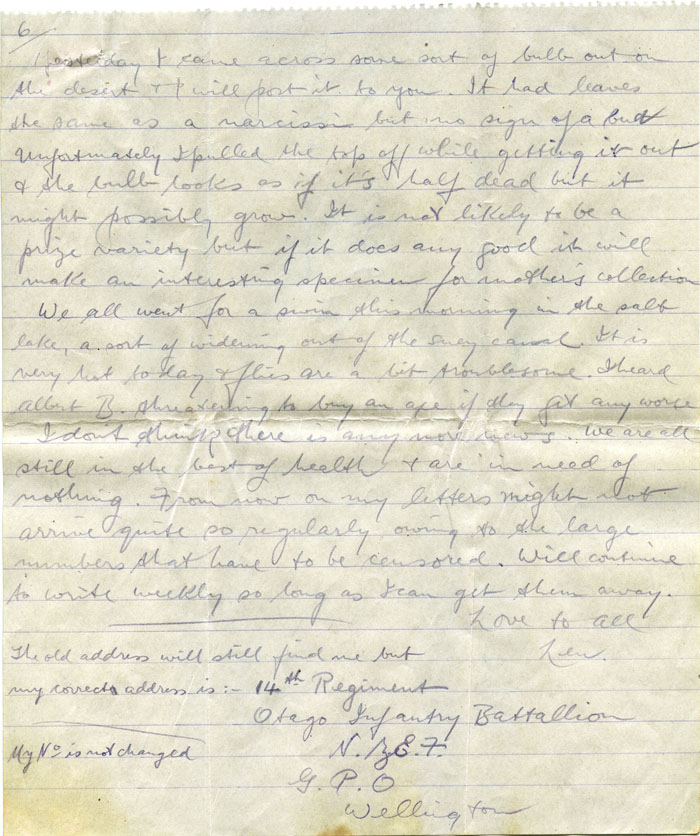 6
Yesterday I came across some sort of bulb out on
the desert & I will post it to you. It had leaves
the same as a narcissi but no sign of a bud
Unfortunately I pulled the top off while getting it out
& the bulb looks as if it's half dead but it
might possibly grow. It is not likely to be a
prize variety but if it does any good it will
make an interesting specimen for mother's collection
We all went for a swim this morning in the salt
lake, a sort of widening out of the suez canal. It is
very hot today & flies are a bit troublesome. I heard
albert B. threatening to buy an axe if they get any worse
I don't think there is any more news. We are all
still in the best of health & are in need of
nothing. From now on my letters might not
arrive quite so regularly owing to the large
numbers that have to be censored. Will continue
to write weekly so long as I can get them away.
Love to all
Len.
The old address will still find me but
my correct address is :- 14th Regiment
Otago Infantry Battallion
My No is not changed
N.Z.E.F.
G.P.O
Wellington